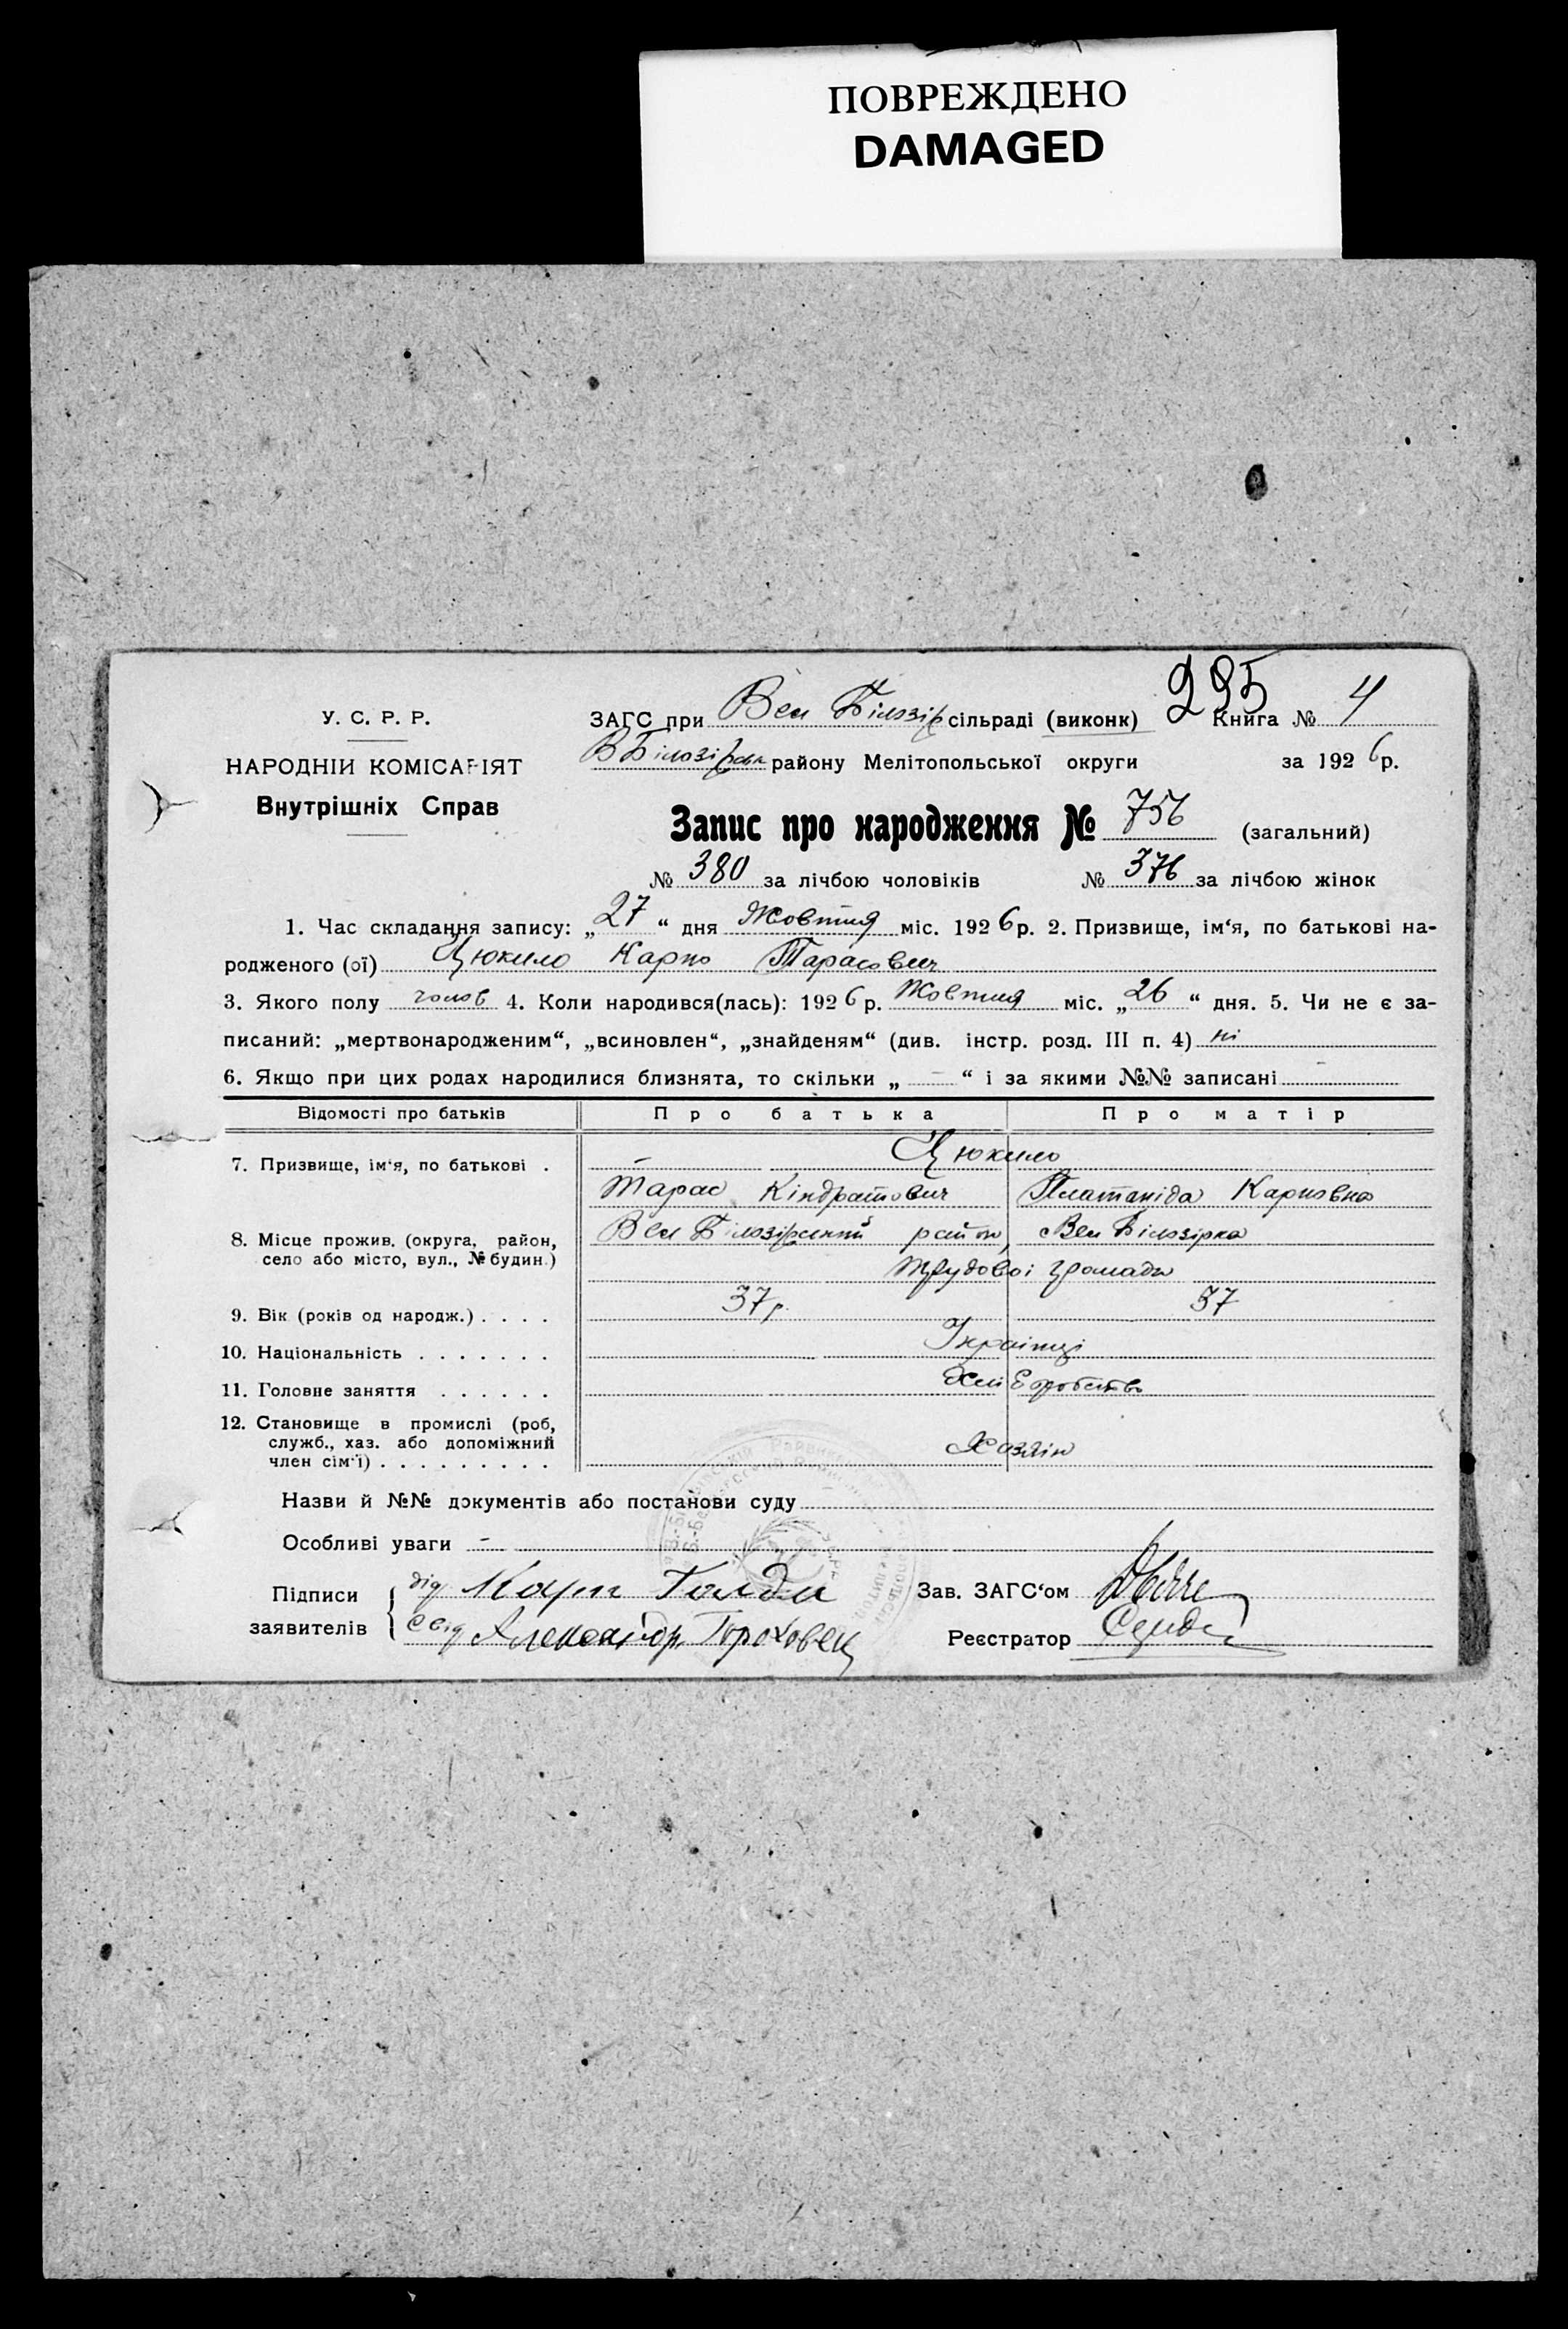 ПОВРЕЖДЕНО
DAMAGED
295
У. С. Р. Р.
ЗАГС при Вел Білозір сільраді (виконк) Книга № 4
НАРОДНІЙ КОМІСАРІЯТ
В Білозірськ району Мелітопольської округи за 1926 р.
Внутрішніх Справ
Запис про народження № 756 (загальний)
№ 380 за лічбою чоловіків № 376 за лічбою жінок
1. Час складання запису: „27“ дня Жовтня міс. 1926 р. 2. Призвище, ім‘я, по батькові на-
родженого (ої) Цюкило Карпо Тарасович
3. Якого полу чолов 4. Коли народився(лась): 1926 р. Жовтня міс. „26“ дня. 5. Чи не є за-
писаний: „мертвонародженим“, „всиновлен“, „знайденям“ (див. інстр. розд. III п. 4) ні
6. Якщо при цих родах народилися близнята, то скільки „ — “ і за якими №№ записані —
Відомості про батьків Про батька Про матір
7. Призвище, ім‘я, по батькові . — Цюкило
Тарас Кіндратович Платаніда Карповна
8. Місце прожив. (округа, район, Вел Білозірський район, Вел Білозірка
село або місто, вул., № будин.) Трудової громади
9. Вік (років од народж.) . . . . 37 р. 37
10. Національність . . . . . . . Українці
11. Головне заняття . . . . . . Хліборобство
12. Становище в промислі (роб,
служб., хаз. або допоміжний Хазяін
член сім‘ї) . . . . . . . . .
Назви й №№ документів або постанови суду
Особливі уваги —
Підписи дід Карп Голда Зав. ЗАГС‘ом
заявителів свід Александр Гороховец Реєстратор